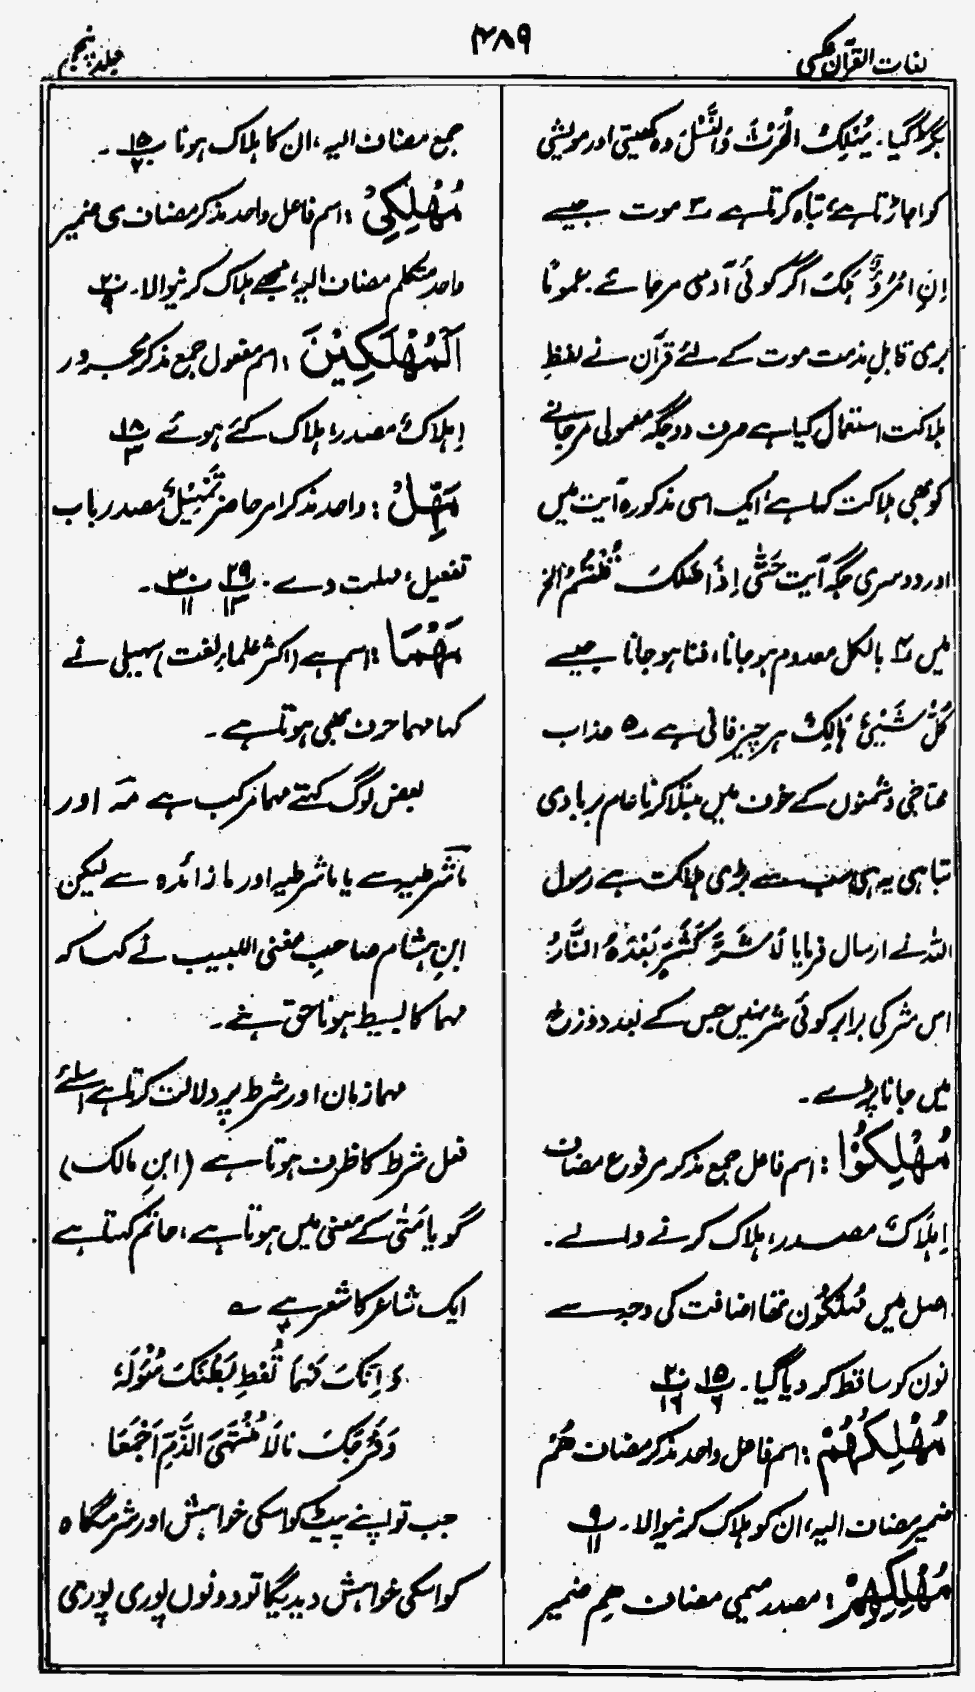 لغات القرآن عکسی
۴۸۹
جلد پنجم
بگڑ گیا۔ یُھْلِکُ الْحَرْثَ وَالنَّسْلَ وہ کھیتی اور مویشی
کو اجاڑتا ہے، تباہ کرتا ہے ۳ موت جیسے
اِنِ امْرُؤٌ ھَلَکَ اگر کوئی آدمی مرجائے۔ عموماً
بری قابلِ مذمت موت کے لئے قرآن نے لفظِ
ہلاکت استعمال کیا ہے صرف دو جگہ معمولی مرجانے
کو بھی ہلاکت کہا ہے، ایک اسی مذکورہ آیت میں
اور دوسری جگہ آیت حَتّٰی اِذَا ھَلَکَ قُلْتُمْ الخ
میں ۴ بالکل معدوم ہوجانا، فنا ہوجانا جیسے
کُلُّ شَیْئٍ ھَالِکٌ ہر چیز فانی ہے ۵ عذاب
محتاجی دشمنوں کے خوف میں مبتلا کرنا عام بربادی
تباہی یہ ہی سب سے بڑی ہلاکت ہے رسول
اللہ نے ارسال فرمایا لَا شَرَّ کَشَرٍّ بَعْدَہُ النَّارُ
اس شر کی برابر کوئی شر نہیں جس کے بعد دوزخ
میں جانا پڑے۔
مُھْلِکُوْا : اسم فاعل جمع مذکر مرفوع مضاف
اِہْلَاکٌ مصدر، ہلاک کرنے والے۔
اصل میں مُہلِکُون تھا اضافت کی وجہ سے
نون کو ساقط کر دیا گیا۔ پ ۱۵/۶ پ ۲۰/۱۶
مُھْلِکُھُمْ : اسم فاعل واحد مذکر مضاف ھُمْ
ضمیر مضاف الیہ، ان کو ہلاک کرنیوالا۔ پ ۹/۱۱
مُھْلِکِھِمْ : مصدر میمی مضاف ھِم ضمیر
جمع مضاف الیہ، ان کا ہلاک ہونا پ ۱۵/۷۔
مُھْلِکِیْ : اسم فاعل واحد مذکر مضاف ی ضمیر
واحد متکلم مضاف الیہ، مجھے ہلاک کرنیوالا۔ پ ۲۰/۹
اَلْمُھْلَکِیْنَ : اسم مفعول جمع مذکر مجرور
اِہلاکٌ مصدر، ہلاک کئے ہوئے پ ۱۸/۳
مَھِّلْ : واحد مذکر امر حاضر تَمْہِیْلٌ مصدر باب
تفعیل، مہلت دے۔ پ ۲۹/۱۳ پ ۳۰/۱۱۔
مَھْمَا : اسم ہے (اکثر علماءِ لغت) سہیلی نے
کہا مہما حرف بھی ہوتا ہے۔
بعض لوگ کہتے مہما مرکب ہے مَہ اور
مَا شرطیہ سے یا ما شرطیہ اور ما زائدہ سے لیکن
ابنِ ہشام صاحبِ مغنی اللبیب نے کہا کہ
مہما کا بسیط ہونا حق ہے۔
مہما زمان اور شرط پر دلالت کرتا ہے اسلئے
فعل شرط کا ظرف ہوتا ہے (ابنِ مالک)
گویا مَتٰی کے معنی میں ہوتا ہے، حاتم کہتا ہے
ایک شاعر کا شعر ہے
وَاِنَّکَ مَہْمَا تُعْطِ بَطْنَکَ سُؤْلَہٗ
وَفَرْجَکَ نَالَا مُنْتَہَی الذَّمِّ اَجْمَعَا
جب تو اپنے پیٹ کو اسکی خواہش اور شرمگاہ
کو اسکی خواہش دیدیگا تو دونوں پوری پوری